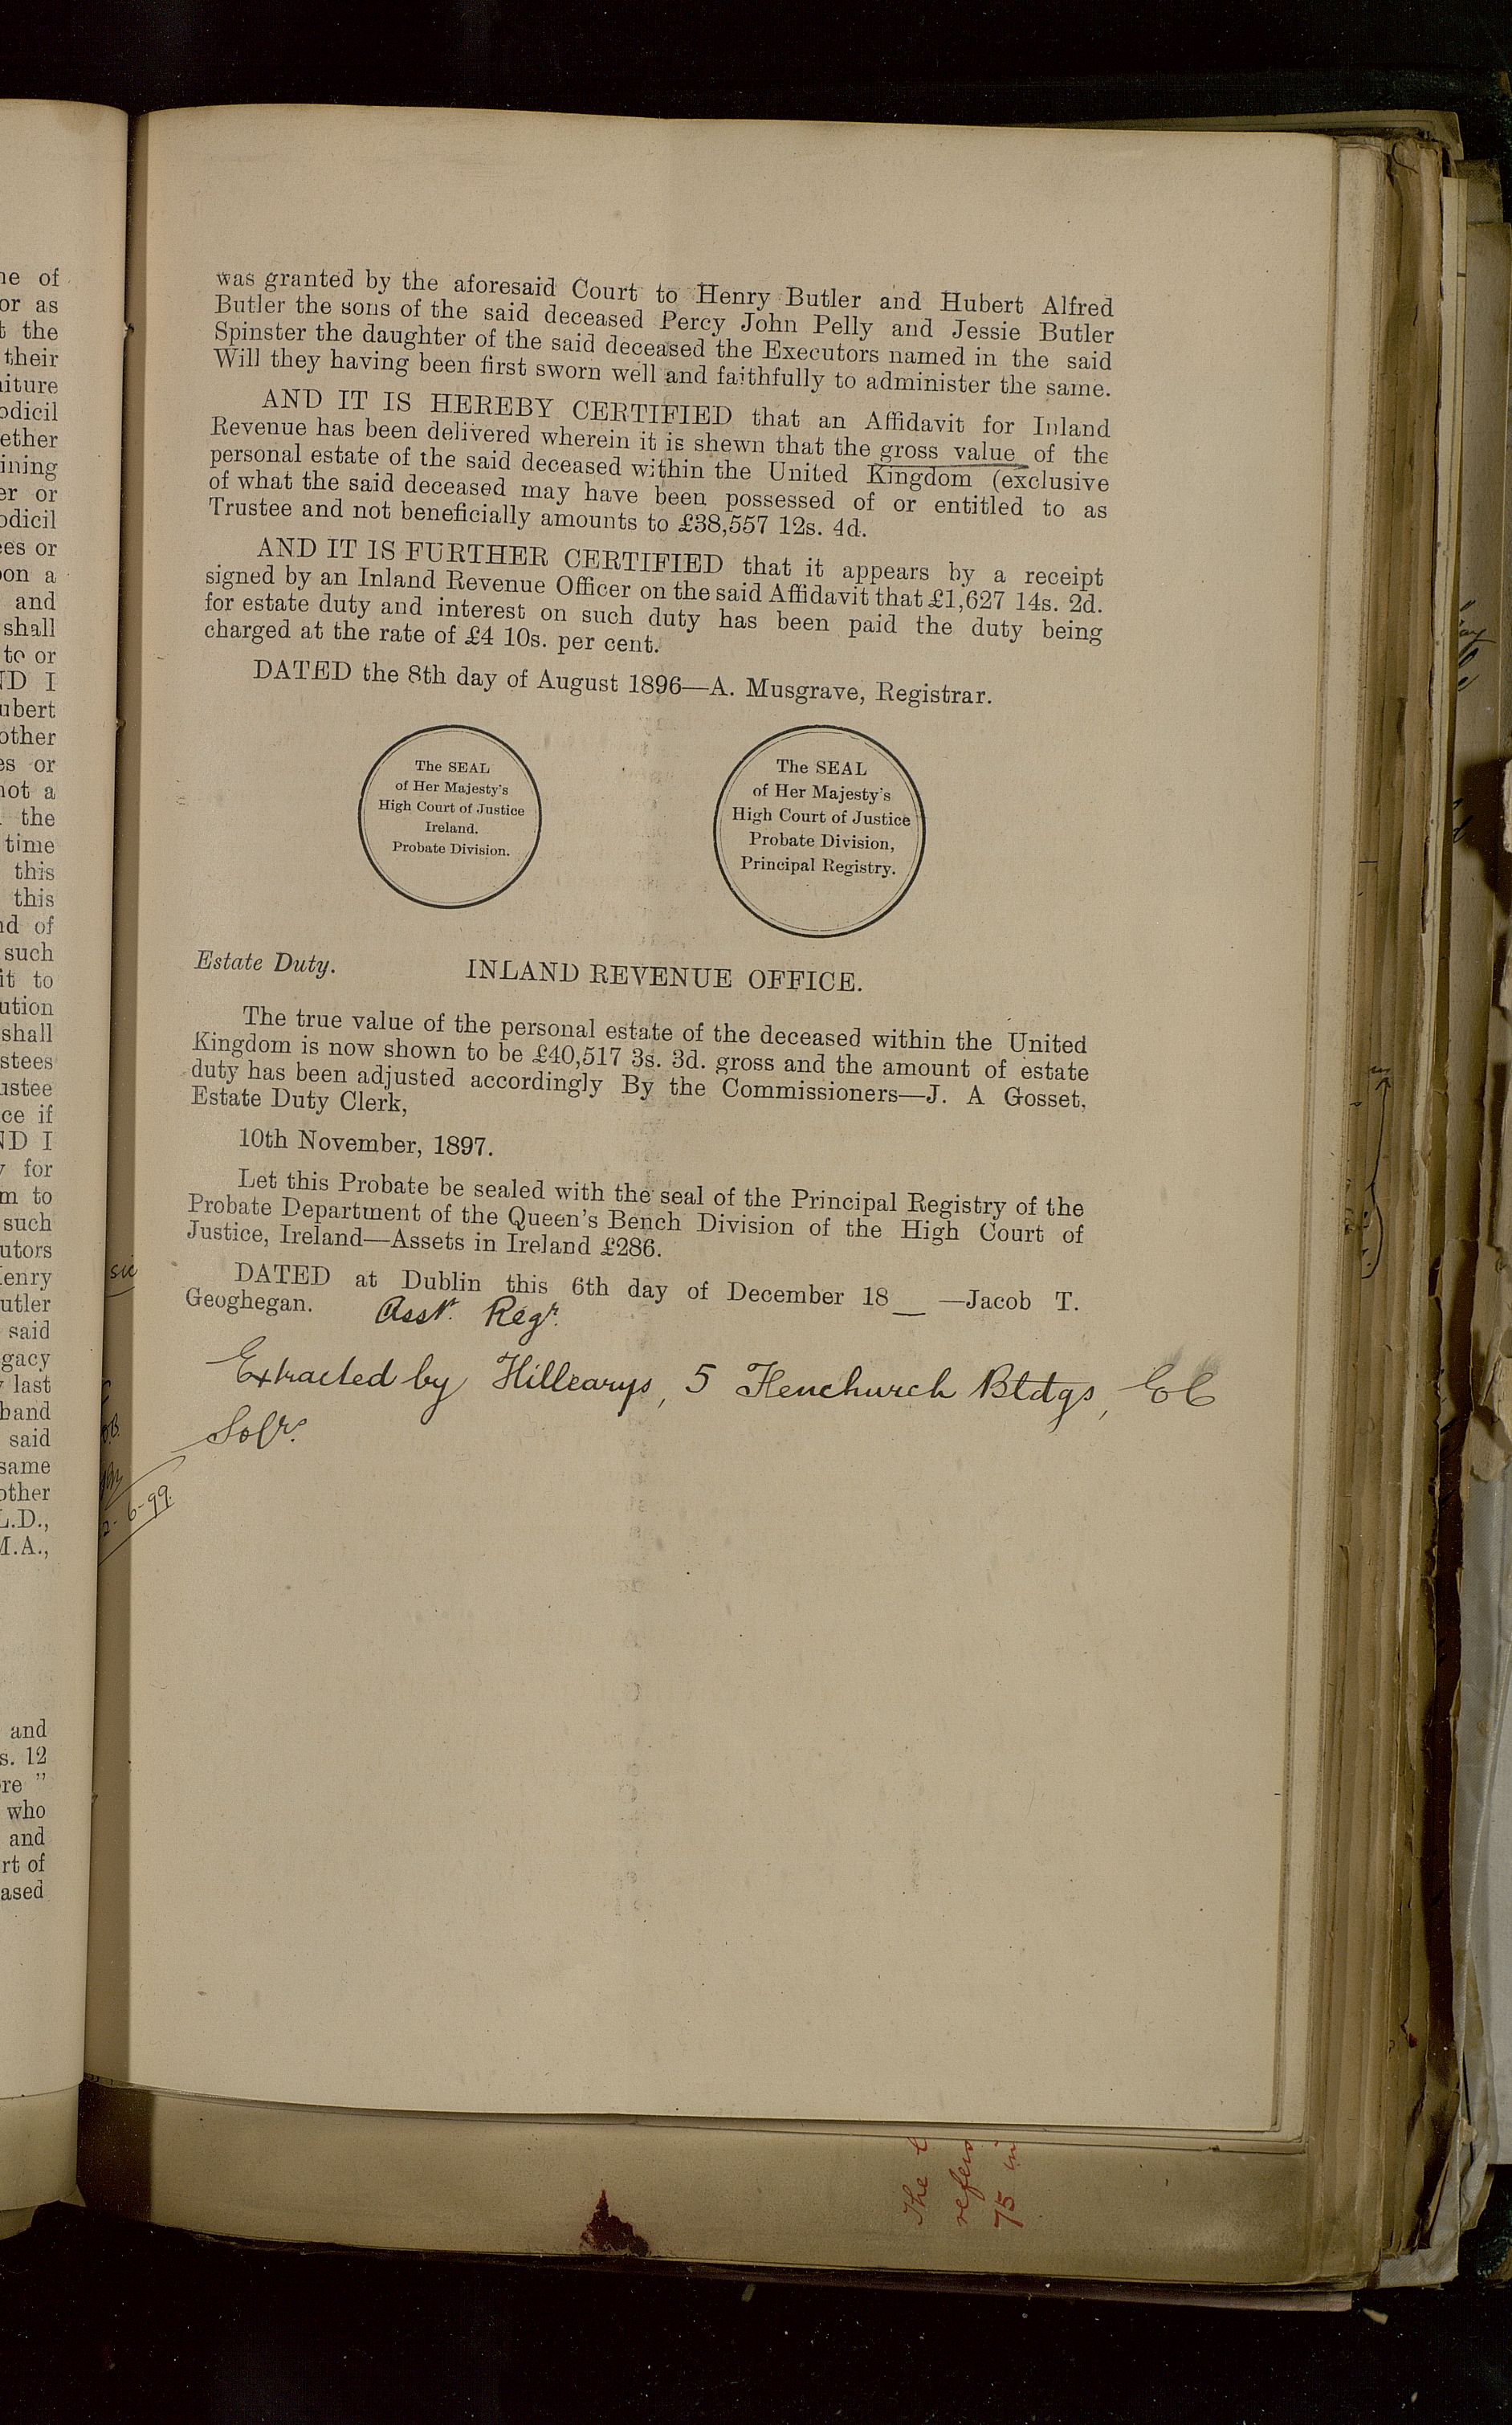 was granted by the aforesaid Court to Henry Butler and Hubert Alfred
Butler the sons of the said deceased Percy John Pelly and Jessie Butler
Spinster the daughter of the said deceased the Executors named in the said
Will they having been first sworn well and faithfully to administer the same.
AND IT IS HEREBY CERTIFIED that an Affidavit for Inland
Revenue has been delivered wherein it is shewn that the gross value of the
personal estate of the said deceased within the United Kingdom (exclusive
of what the said deceased may have been possessed of or entitled to as
Trustee and not beneficially amounts to £38,557 12s. 4d.
AND IT IS FURTHER CERTIFIED that it appears by a receipt
signed by an Inland Revenue Officer on the said Affidavit that £1,627 14s. 2d.
for estate duty and interest on such duty has been paid the duty being
charged at the rate of £4 10s. per cent.
DATED the 8th day of August 1896—A. Musgrave, Registrar.
The SEAL
of Her Majesty's
High Court of Justice
Ireland.
Probate Division.
The SEAL
of Her Majesty's
High Court of Justice
Probate Division,
Principal Registry.
Estate Duty. INLAND REVENUE OFFICE.
The true value of the personal estate of the deceased within the United
Kingdom is now shown to be £40,517 3s. 3d. gross and the amount of estate
duty has been adjusted accordingly By the Commissioners—J. A Gosset,
Estate Duty Clerk,
10th November, 1897.
Let this Probate be sealed with the seal of the Principal Registry of the
Probate Department of the Queen's Bench Division of the High Court of
Justice, Ireland—Assets in Ireland £286.
sic
DATED at Dublin this 6th day of December 18__ —Jacob T.
Geoghegan. Asst. Regr.
Extracted by Hillearys, 5 Fenchurch Bldgs, EC
Solrs.
6-99.